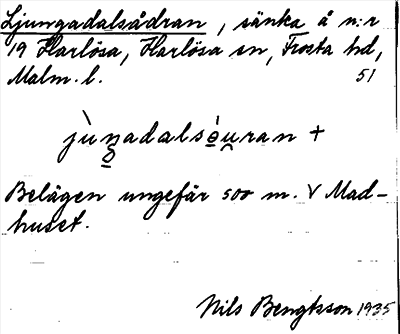 Ljungadalsådran, sänka å n:r
19 Harlösa, Harlösa sn, Frosta hd,
Malm. l. 51
jùn̥adalsè̠u̯ran +
Belägen ungefär 500 m. V Mad-
huset.
Nils Bengtsson 1935